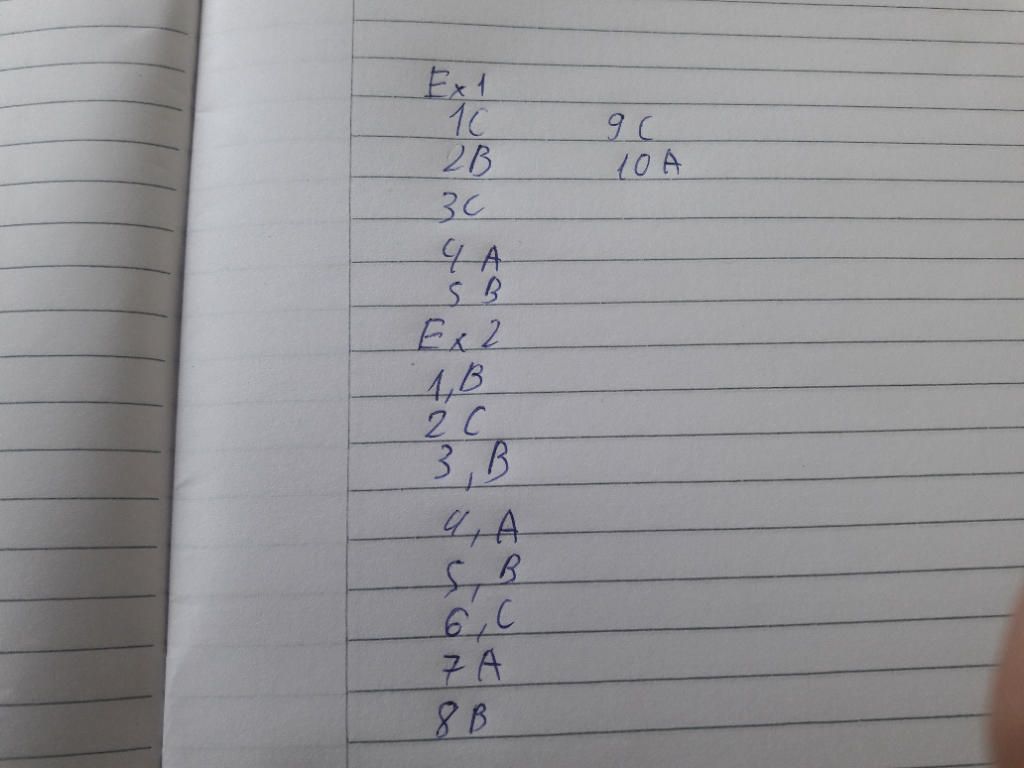 Ex 1
1C
2B
3C
4 A
5 B
Ex 2
1, B
2 C
3, B
4, A
5, B
6, C
7 A
8 B
9 C
10 A